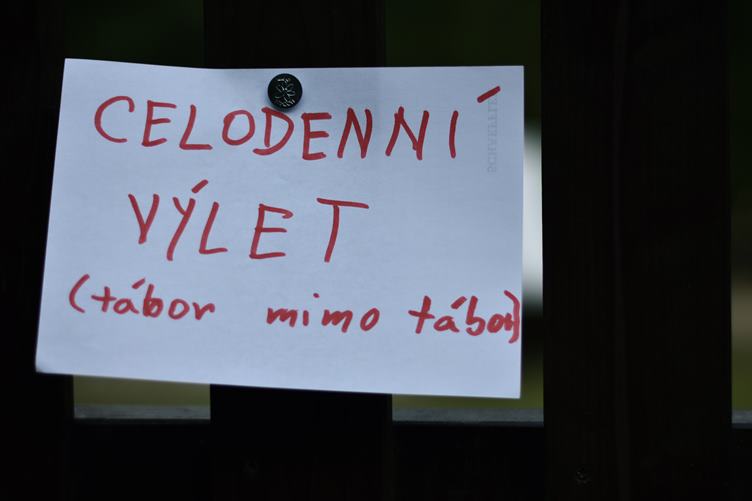 CELODENNÍ
VÝLET
(tábor mimo tábor)